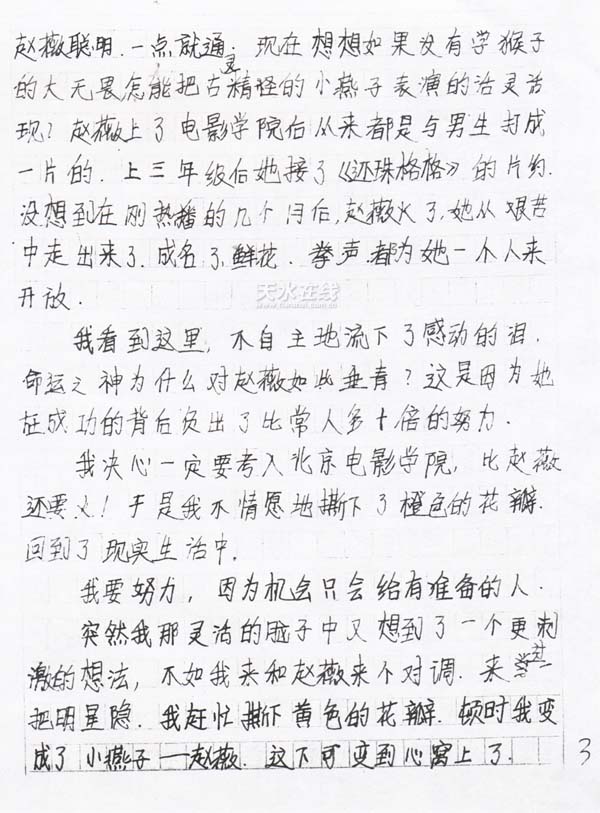 赵薇聪明.一点就通.现在想想如果没有学猴子
的大无畏怎能把古灵精怪的小燕子表演的活灵活
现?赵薇上了电影学院后从来都是与男生打成
一片的.上三年级后她接了《还珠格格》的片约.
没想到在刚热播的几个月后,赵薇火了,她从艰苦
中走出来了.成名了,鲜花.拳声.都为她一个人来
开放.
天水在线
我看到这里,不自主地流下了感动的泪.
命运之神为什么对赵薇如此垂青?这是因为她
在成功的背后负出了比常人多十倍的努力.
我决心一定要考入北京电影学院,比赵薇
还要火!于是我不情愿地撕下了橙色的花瓣.
回到了现实生活中.
我要努力,因为机会只会给有准备的人.
突然我那灵活的脑子中又想到了一个更刺
激的想法,不如我来和赵薇来个对调.来过一
把明星隐.我赶忙撕下黄色的花瓣.顿时我变
成了小燕子—赵薇.这下可变到心窝上了.
3